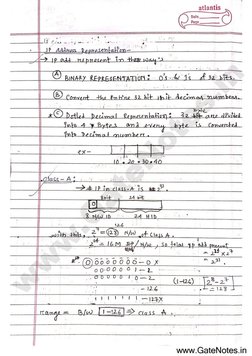 atlantis
Date
IP Address Representation-
→ IP add represent in three way's
(A) BINARY REPRESENTATION: 0's & 1's of 32 bits.
(B) Convert the entire 32 bit into decimal number.
(C) Dotted Decimal Representation: 32 bits are divided
into 4 Bytes and every byte is converted
into decimal number.
ex-
10.20.30.40
Class-A:
→ # IP in class-A is 2^31
8bit 24 bit
0
8 NID 24 HID
with this, 2^7 = 128 N/W of class A.
2^24 = 16M IP/N/W, so total IP add present
0 0000000 - 0 X
0000001 - 1
0000010 - 2
- 126
1111111 - 127 X
(1-126)
Range = B/W 1-126 ⇒ class A.
www.GateNotes.in